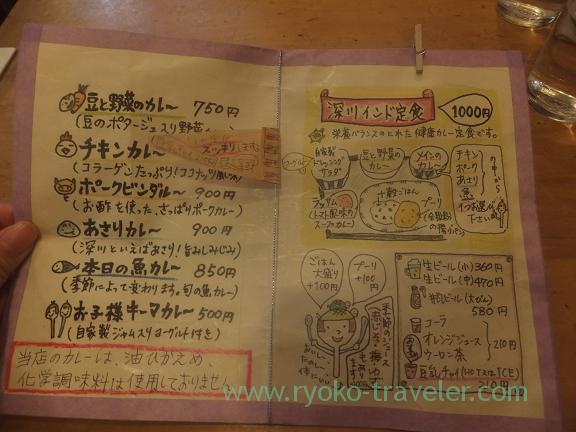 豆と野菜のカレー 750円
(豆のポタージュスリ野菜
チキンカレー
(コラーゲンたっぷり!ココナッツ風味)
スッキリします。
ポークビンダルー 900円
(お酢を使った、さっぱりポークカレー)
あさりカレー 900円
(深川といえばあさり!旨みしみじみ)
本日の魚カレー 850円
(季節によって変わります。旬の魚カレー)
お子様キーマカレー 500円
(自家製ジャムスリヨーグルト付き)
当店のカレーは、油ひかえめ
化学調味料は使用しておりません
深川インド定食 1000円
栄養バランスのとれた健康カレー定食です。
ヨーグルト
自家製
ドレッシング
サラダ
豆と野菜の
カレー
メインの
カレー
チキン
ポーク
あさり
魚
の中から
1つお選び
下さい
ラッサム
(トマト風味の
スープカレー)
十穀ごはん
プーリ
(全粒粉
の揚げパン)
ごはん
大盛り
+100円
プーリ
+100
円
季節のジュース
生ビール(小)360円
生ビール(中)470円
瓶ビール(大びん)
580円
コーラ
オレンジジュース
ウーロン茶
210円
豆乳チャイ(HOTまたはICE)
210円
www.ryoko-traveler.com